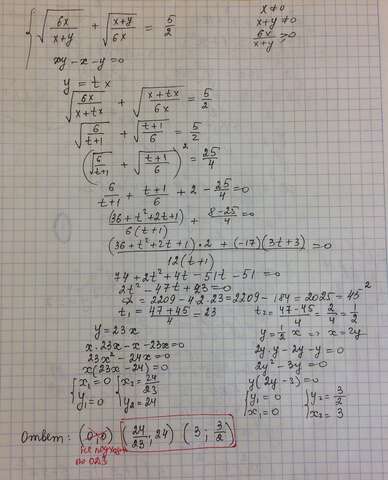 √(6x/(x+y)) + √((x+y)/6x) = 5/2
x≠0
x+y≠0
6x/(x+y) > 0
xy-x-y=0
y = tx
√(6x/(x+tx)) + √((x+tx)/6x) = 5/2
√(6/(t+1)) + √((t+1)/6) = 5/2
(√(6/(t+1)) + √((t+1)/6))² = 25/4
6/(t+1) + (t+1)/6 + 2 - 25/4 = 0
(36+t²+2t+1)/6(t+1) + (8-25)/4 = 0
((36+t²+2t+1)·2 + (-17)(3t+3))/12(t+1) = 0
74+2t²+4t-51t-51=0
2t²-47t+23=0
D=2209-4·2·23=2209-184=2025=45²
t₁ = (47+45)/4 = 23
t₂ = (47-45)/4 = 2/4 = 1/2
y=23x
x·23x-x-23x=0
23x²-24x=0
x(23x-24)=0
{x₁=0 {x₂=24/23
{y₁=0 {y₂=24
y=1/2 x => x=2y
2y·y-2y-y=0
2y²-3y=0
y(2y-3)=0
{y₁=0 {y₂=3/2
{x₁=0 {x₂=3
Ответ: (0,0) (24/23; 24) (3; 3/2)
не подходит
по ОДЗ